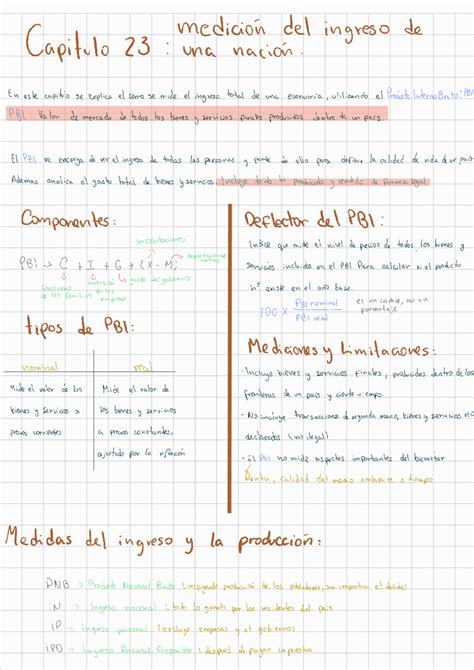 Capitulo 23 : medición del ingreso de
una nación.
En este capitulo se explica el como se mide el ingreso total de una economía, utilizando el Producto Interno Bruto: PBI
PBI: Valor de mercado de todos los bienes y servicios finales producidos dentro de un país
El PBI se encarga de ver el ingreso de todas las personas y parte de ello para definir la calidad de vida del país
Ademas analiza el gasto total de bienes y servicios. Incluye todo lo producido y vendido de forma legal
Componentes:
importaciones
PBI -> C + I + G + (X - M)
exportaciones netas
consumo de las familias
inversión de las empresas
gasto del gobierno
tipos de PBI:
nominal
real
Mide el valor de los
bienes y servicios a
precios corrientes
Mide el valor de
los bienes y servicios
a precios constantes,
ajustado por la inflación
Deflector del PBI:
Indice que mide el nivel de precios de todos los bienes y
servicios incluidos en el PBI. Para calcular si el producto
no existe en el año base.
100 x PBI nominal
PBI real
es un indice, no un
porcentaje
Mediciones y Limitaciones:
· Incluye bienes y servicios finales, producidos dentro de las
fronteras de un país y cierto tiempo.
· No incluye transacciones de segunda mano, bienes y servicios no
declarados (no legal)
· El PBI no mide aspectos importantes del bienestar
Renta, calidad del medio ambiente o tiempo
Medidas del ingreso y la producción:
PNB -> Producto Nacional Bruto (incluyendo producción de los pobladores, sin importar el donde)
IN -> Ingreso nacional : todo lo ganado por los residentes del país
IP -> Ingreso personal (excluye empresas y el gobierno)
IPD -> Ingreso Personal Disponible (después de pagar impuestos)